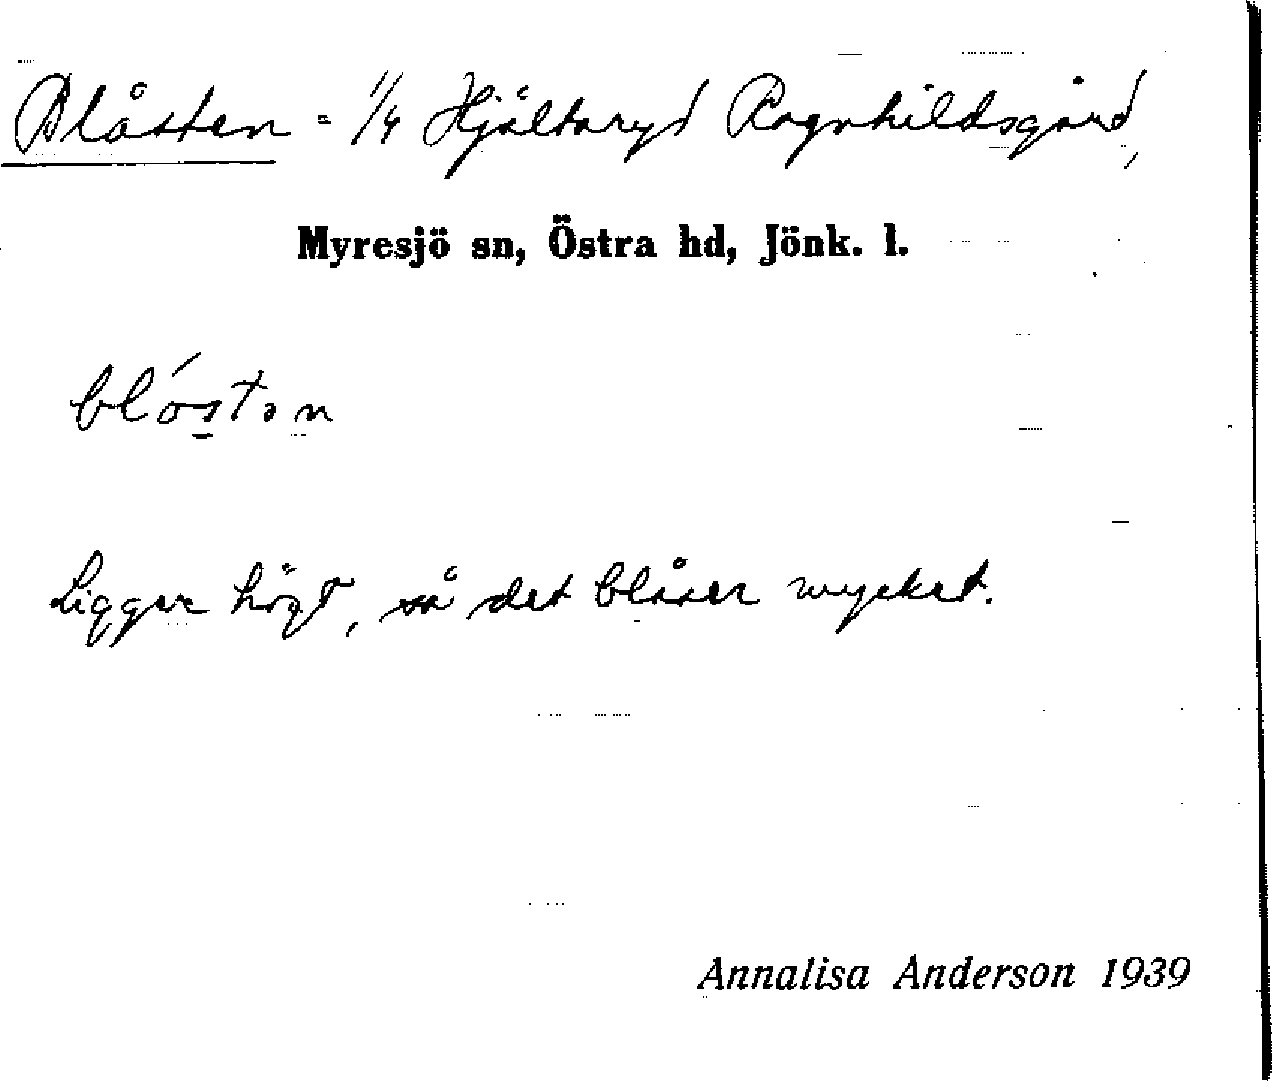 Blåsten = 1/4 Hjältaryd Ragnhildsgård,
Myresjö sn, Östra hd, Jönk. l.
blóstən
Ligger högt, så det blåser mycket.
Annalisa Anderson 1939